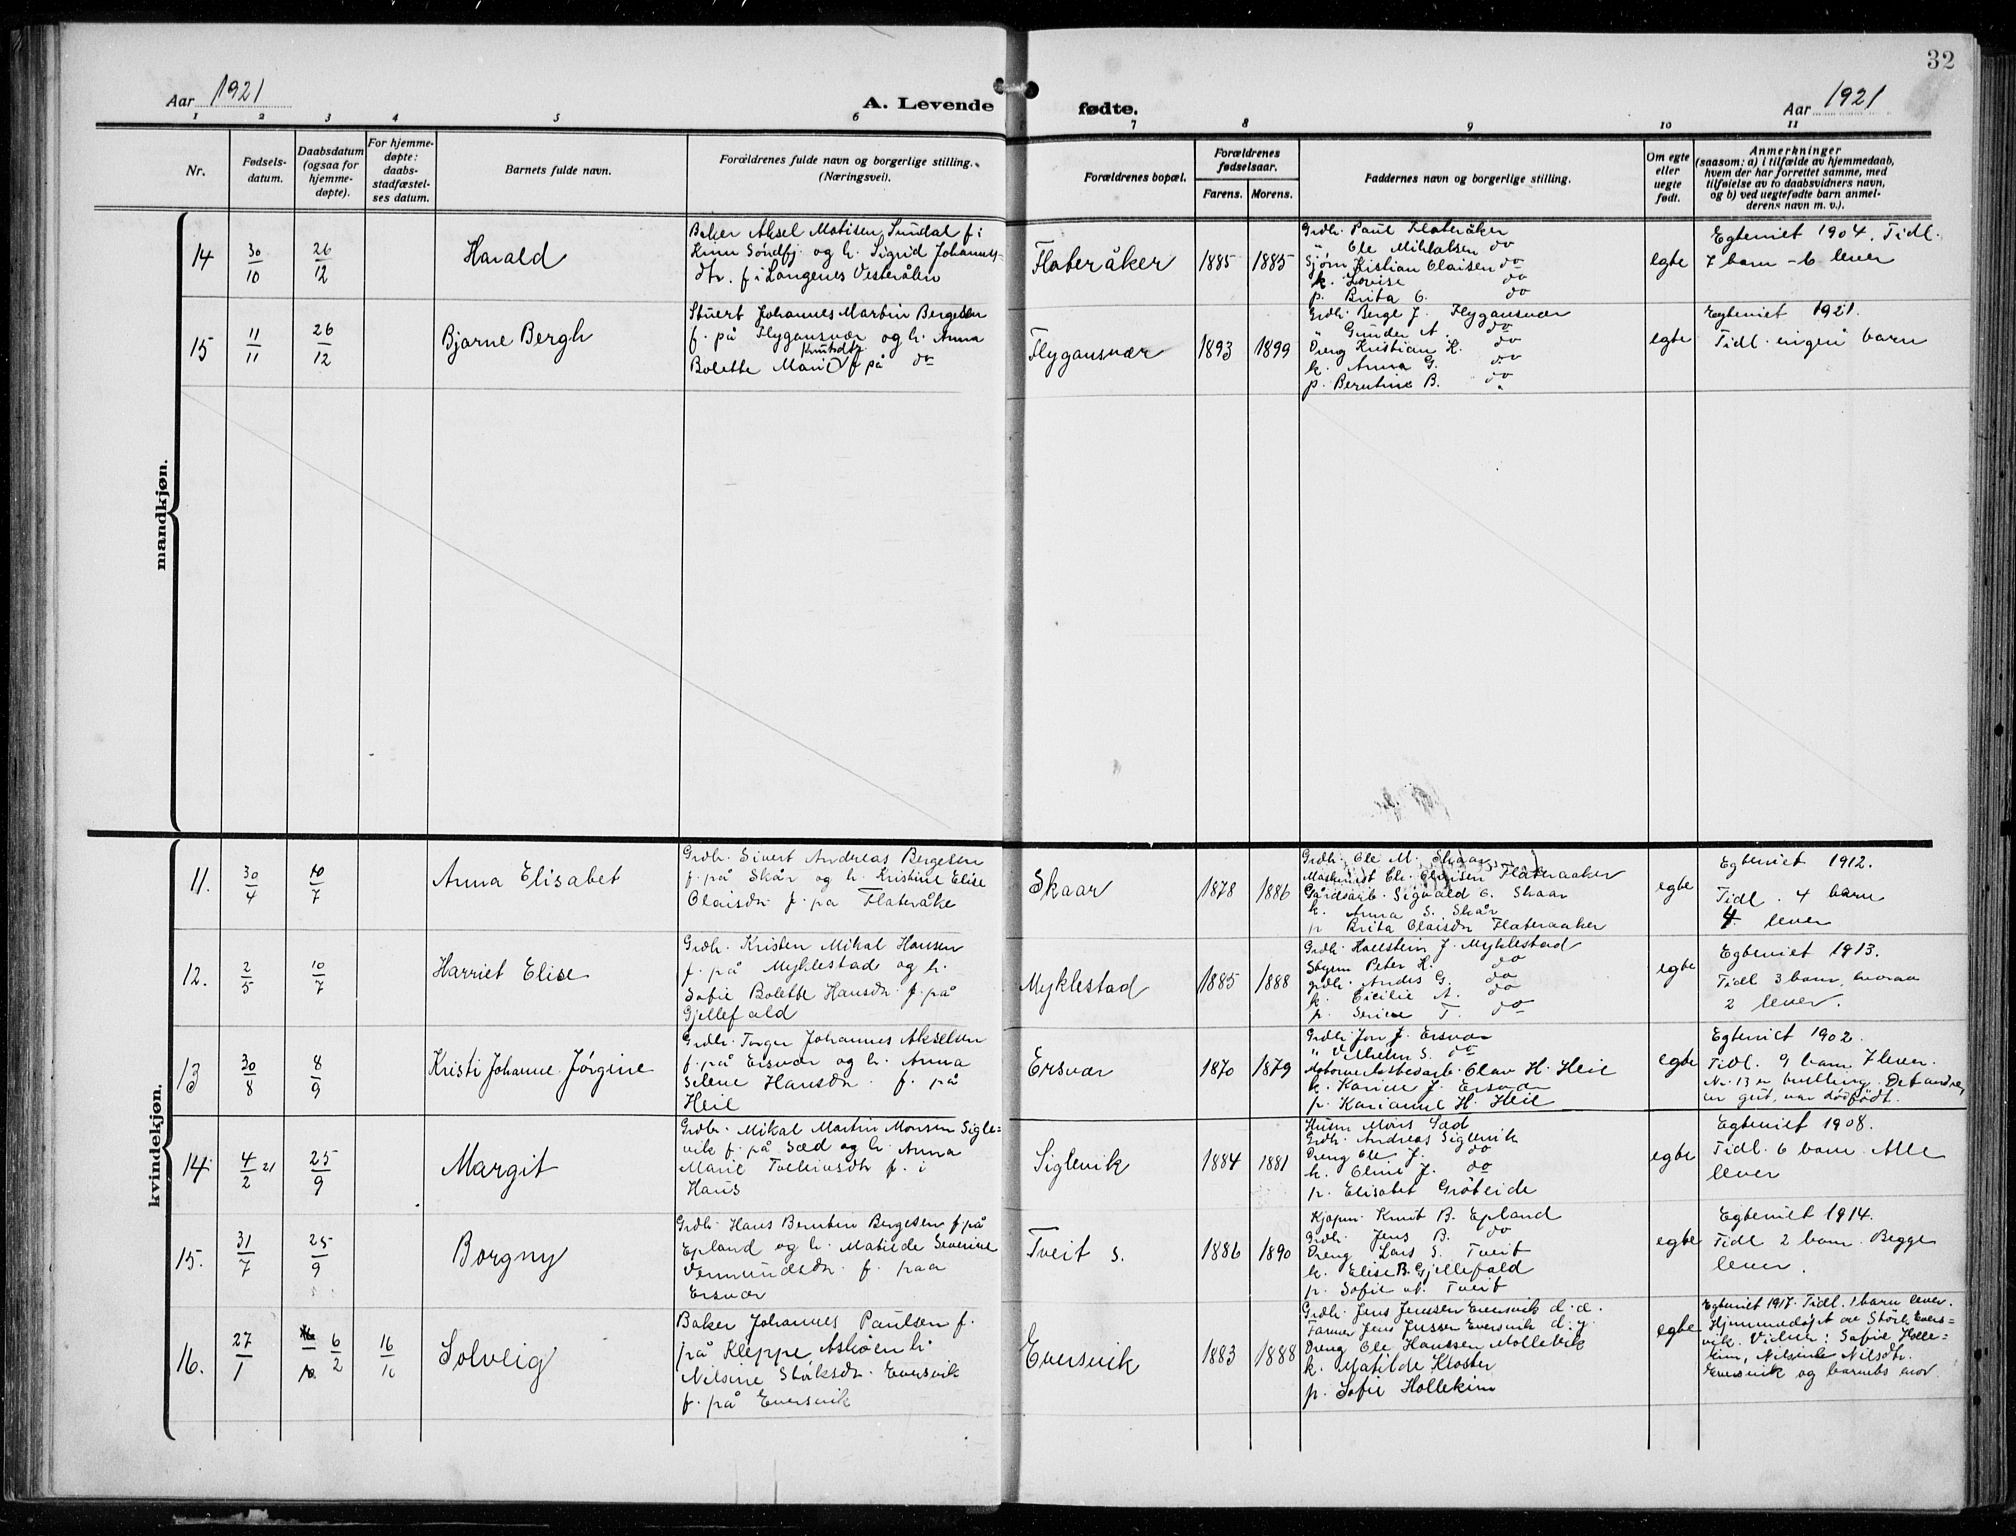 32
Aar 1921
A. Levende fødte.
Aar 1921
1 2 3 4 5 6 7 8 9 10 11
Nr.
Fødsels-
datum.
Daabsdatum
(ogsaa for
hjemme-
døpte).
For hjemme-
døpte:
daabs-
stadfæstel-
ses datum.
Barnets fulde navn.
Forældrenes fulde navn og borgerlige stilling.
(Næringsvei).
Forældrenes bopæl.
Forældrenes
fødselsaar.
Farens. Morens.
Faddernes navn og borgerlige stilling.
Om egte
eller
uegte
født.
Anmerkninger
(saasom: a) i tilfælde av hjemmedaab,
hvem der har forrettet samme, med
tilføielse av to daabsvidners navn,
og b) ved uegtefødte barn anmel-
derens navn m. v.).
mandkjøn.
14
30/10
26/12
Harald
Baker Aksel Matisen Sundal f i
Kinn Söndfj og h. Sigrid Johannes-
dtr. f i Langenes Vesterålen
Flateråker
1885
1885
Grdbr. Paul Flateråker
" Ole Mikkalsen do
Sjøm Kristian Olaisen do
k. Lovise do
p. Brita O. do
egte
Egteviet 1904. Tidl.
7 barn - 6 lever
15
11/11
26/12
Bjarne Bergh
Stuert Johannes Martin Bergesen
f. på Flygansvær og h. Anna
Knutsdtr
Bolette Marie f på do
Flygansvær
1893
1899
Grdbr. Berge J. Flygansvær
" Gunder A. do
Dreng Kristian K. do
k. Anna G. do
p. Berntine B. do
egte
Egteviet 1921.
Tidl. ingen barn
kvindekjøn.
11.
30/4
10/7
Anna Elisabet
Grdbr. Sivert Andreas Bergesen
f. på Skår og h. Kristine Elise
Olaisdr f. pa Flateråke
Skaar
1878
1886
Grdbr. Ole M. Skaar
Maskinist Chr. Olaisen Flateraaker
Gårdsarb. Sigvald O. Skaar
k. Anna S. Skår
p Brita Olaisdr Flateraaker
egte
Egteviet 1912.
Tidl. 4 barn
4 lever
12.
2/5
10/7
Harriet Elise
Grdbr. Kristen Mikal Hansen
f. på Myklestad og h.
Sofie Bolette Hansdr. f. på
Gjellefald
Myklestad
1885
1888
Grdbr. Hallstein J. Myklestad
Styrm Peter H. do
grdbr. Andes G. do
k. Cicilie A. do
p. Serine T. do
egte
Egteviet 1913.
Tidl 3 barn, hvorav
2 lever.
13
30/8
8/9
Kristi Johanne Jørgine
Grdbr. Torger Johannes Akselsen
f. på Ersvær og h. Anna
Selene Hansdr. f. på
Heie
Ersvær
1870
1879
Grdbr Jon J. Ersvær
" Vilhelm S. do
Motorverkstedarb. Olav H. Heie
k. Karine J. Ersvær
p. Karianne H. Heie
egte
Egteviet 1902.
Tidl. 9 barn 7 lever.
Nr. 13 er tvilling. Det andre,
en gut, var dødfødt.
14
4/2 21
25/9
Margit
Grdbr. Mikal Martin Monsen Sigle=
vik f. på Sæd og h. Anna
Marie Tollevsdr f. i
Haus
Siglevik
1884
1881
Husm Mons Sæd
Grdbr. Andreas Siglevik
Dreng Ole J. do
k. Oline J. do
p. Elisabet Gröteide
egte
Egteviet 1908.
Tidl. 6 barn. Alle
lever
15.
31/7
25/9
Borgny
Grdbr. Hans Berntin Bergesen f. på
Epland og h. Matilde Severine
Vermundsdr. f. paa
Ersvær
Tveit s.
1886
1890
Kjøpm. Knut B. Epland
Grdbr. Jens B. do
Dreng Lars S. Tveit
k. Elise B. Gjellefald
p. Sofie A. Tveit
egte
Egteviet 1914.
Tidl 2 barn. Begge
lever.
16.
27/1
6/2
16/10
Solveig
Baker Johannes Paulsen f.
på Kleppe Askøen h.
Nilsine Störksdr. Eversvik
f. på Eversvik
Eversvik
1883
1888
Grdbr. Jens Jenssen Eversvik d. e.
Farmer Jens Jenssen Eversvik d. y.
Dreng Ole Hanssen Mollevik
k. Matilde Kloster
p. Sofie Hollekim
egte
Egteviet 1917. Tidl. 1 barn lever.
Hjemmedøpt av Störk Evers=
vik. Vidner: Sofie Holle=
kim, Nilsine Nilsdtr.
Eversvik og barnets mor.